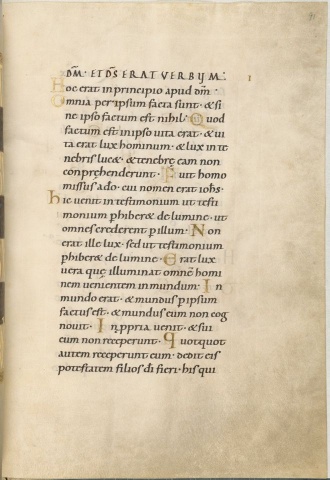 DM̅· ET DS̅ ERAT VERBUM·
Hoc erat in principio apud dm̅·
Omnia per ipsum facta sunt· & si
ne ipso factum est nihil· Quod
factum est in ipso vita erat· & vi
ta erat lux hominum· & lux in te
nebris lucet· & tenebre eam non
conprehenderunt· Fuit homo
missus a do· cui nomen erat iohs·
hic venit in testimonium ut testi
monium phiberet de lumine· ut
omnes crederent p illum· Non
erat ille lux· sed ut testimonium
phiberet de lumine· Erat lux
vera que illuminat omne̅ homi
nem venientem in mundum· In
mundo erat· & mundus p ipsum
factus est· & mundus eum non cog
novit· In ppria venit· & sui
eum non receperunt· Quotquot
autem receperunt eum· dedit eis
potestatem filios di̅ fieri· his qui